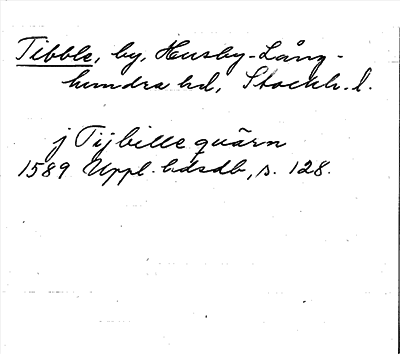 Tibble, by, Husby-Lång-
hundra hd, Stockh. l.
j Tijbille quärn
1589 Uppl. hdsdb, s. 128.